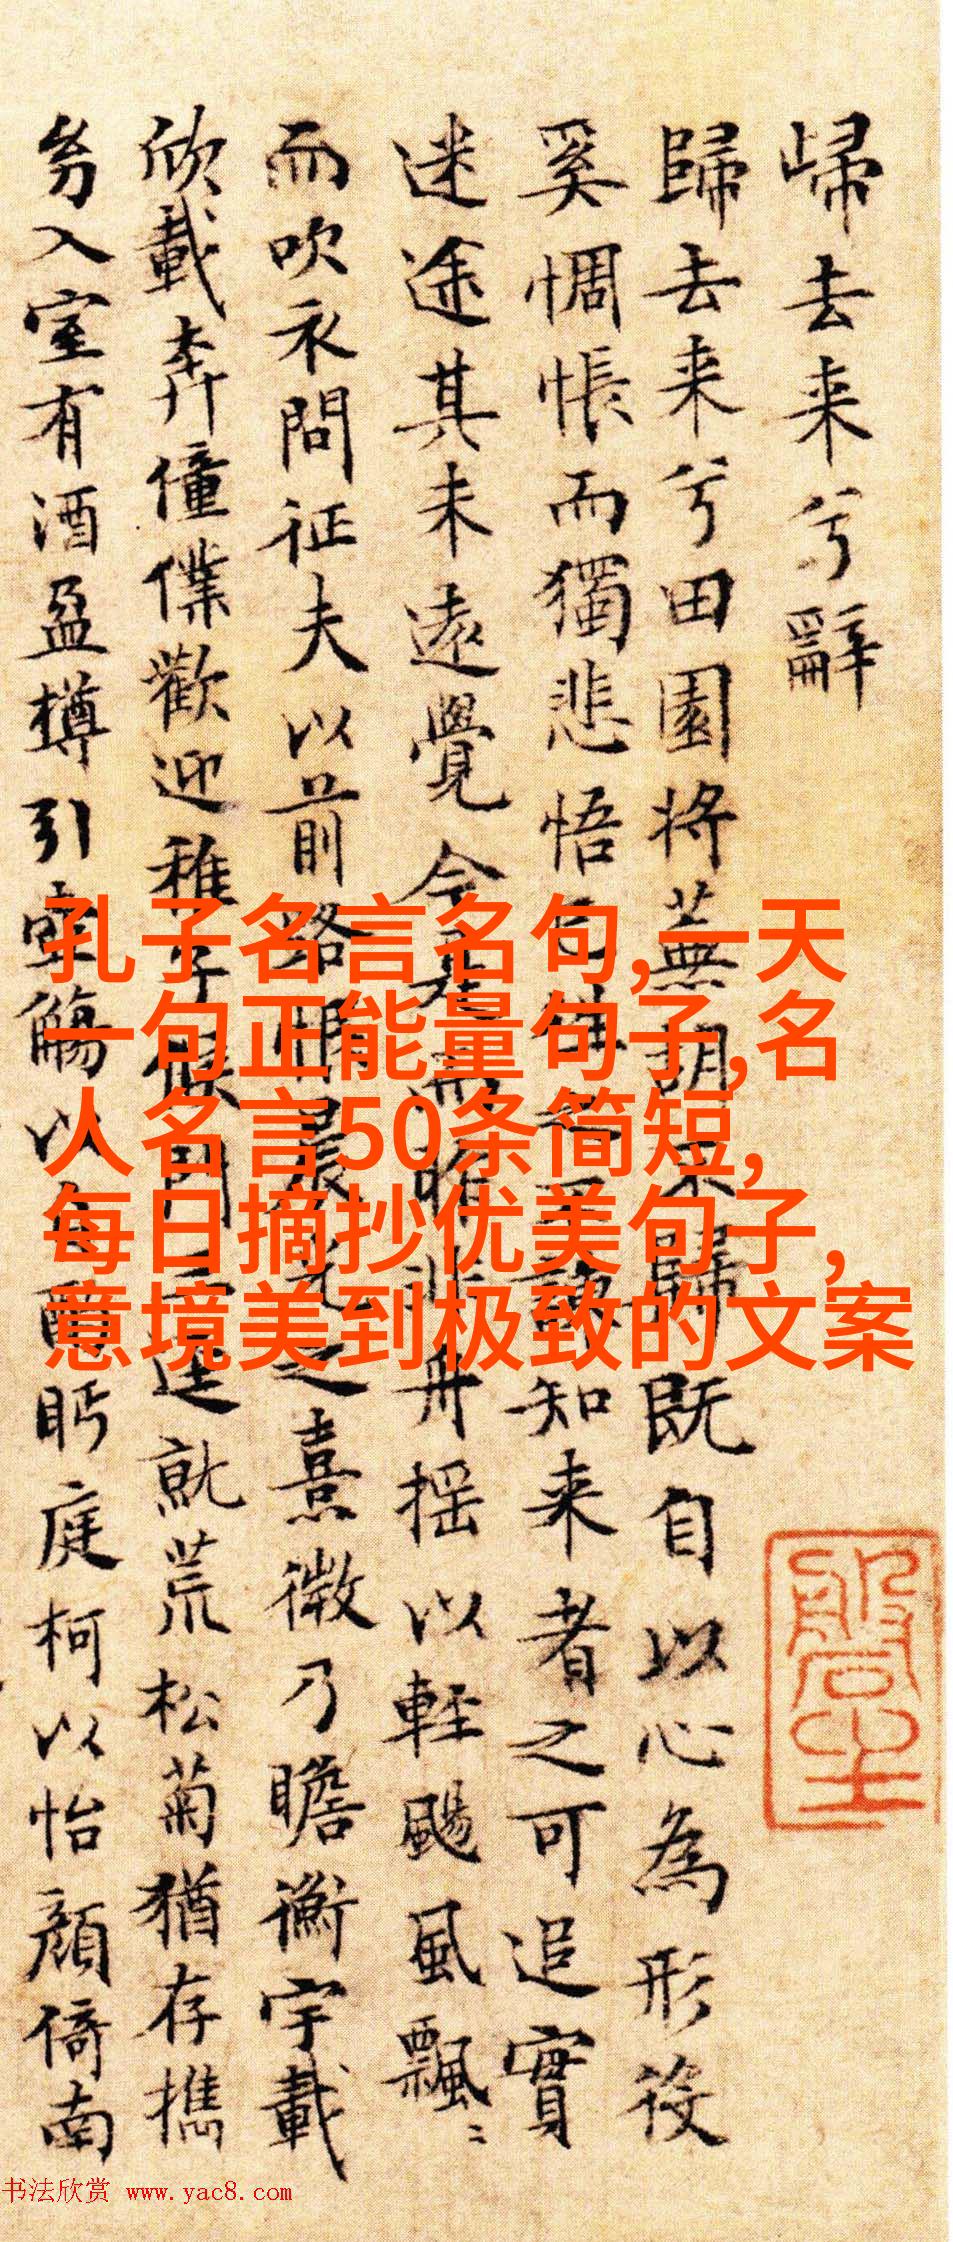 歸去来兮辭
歸去来兮田園将蕪胡不歸既自以心為形役
奚惆悵而獨悲悟已往之不諫知来者之可追實
迷途其未遠覺今是而昨非舟揺以輕颺風飄〻
而吹衣問征夫以前路恨晨光之熹微乃瞻衡宇載
欣載奔僮僕歡迎稚子候門三逕就荒松菊猶存攜
㓜入室有酒盈樽引壺觴以自酌眄庭柯以怡顔倚南
孔子名言名句,一天
一句正能量句子,名
人名言50条简短,
每日摘抄优美句子,
意境美到极致的文案
书法欣赏 www.yac8.com